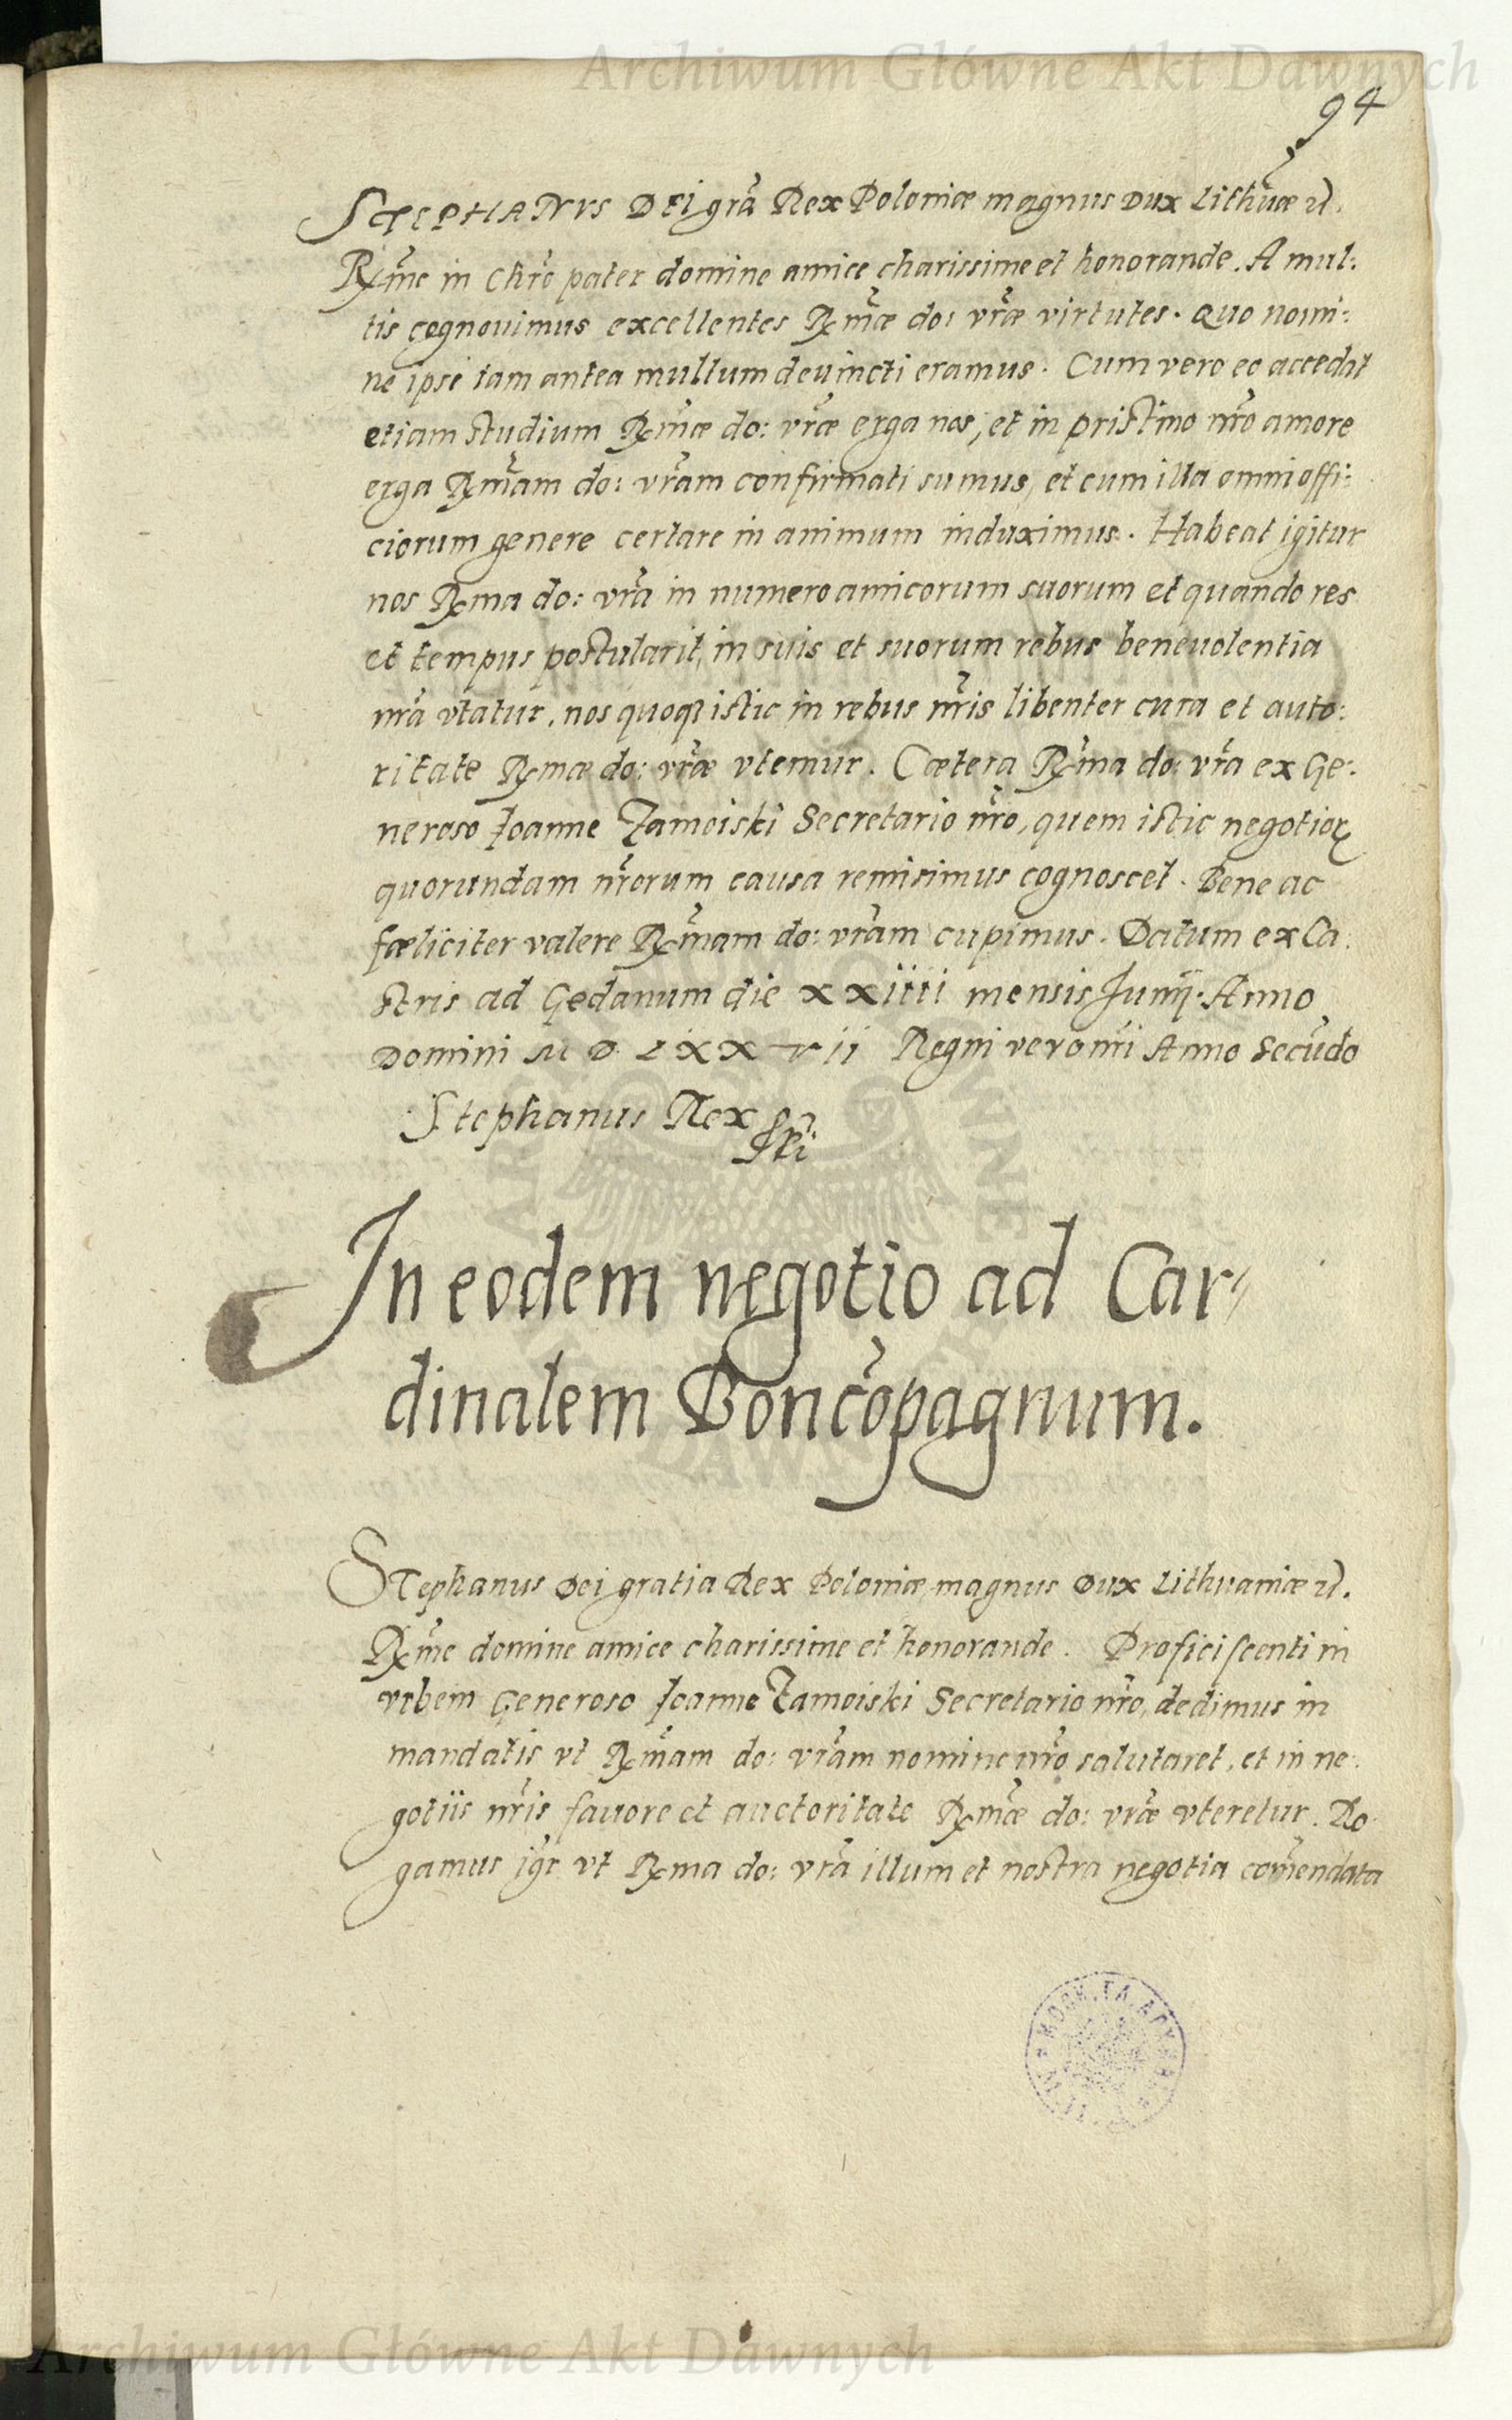 Archiwum Główne Akt Dawnych
94
STEPHANVS DEI grã Rex Poloniæ magnus Dux Lithũæ
Rx̃me in Chrõ pater domine amice charissime et honorande. A mul:
tis cognouimus excellentes Rx̃mæ do: vræ̃ virtutes. Quo nomi:
ne ipsi iam antea multum deuincti eramus. Cum vero eo accedat
etiam studium Rx̃mæ do: vræ̃ erga nos, et in pristino nr̃o amore
erga Rx̃mam do: vrãm confirmati sumus, et cum illa omni offi:
ciorum genere certare in animum induximus. Habeat igitur
nos Rx̃ma do: vrã in numero amicorum suorum et quando res
et tempus postularit, in suis et suorum rebus beneuolentia
nrã vtatur, nos quoqꝫ istic in rebus nr̃is libenter cura et auto:
ritate Rx̃mæ do: vræ̃ vtemur. Cætera Rx̃ma do: vrã ex Ge:
neroso Joanne Zamoiski Secretario nr̃o, quem istic negotioꝝ
quorundam nr̃orum causa remisimus cognoscet. Bene ac
fæliciter valere Rx̃mam do: vrãm cupimus. Datum ex Ca
stris ad Gedanum die xxiiii mensis Junij. Anno
Domini M D LXXvii Regni vero nr̃i Anno Secũdo
Stephanus Rex
In eodem negotio ad Car⸗
dinalem Boncõpagnum.
Stephanus Dei gratia Rex Poloniæ, magnus Dux Lithuaniæ
Rx̃me domine amice charissime et honorande. Proficiscenti in
vrbem Generoso Joanne Zamoiski Secretario nr̃o, dedimus in
mandatis vt Rx̃mam do: vrãm nomine nr̃o salutaret, et in ne:
gotiis nr̃is fauore et auctoritate Rx̃mæ do: vræ̃ vteretur. Ro
gamus igr̃ vt Rx̃ma do: vrã illum et nostra negotia com̃endata
Archiwum Główne Akt Dawnych